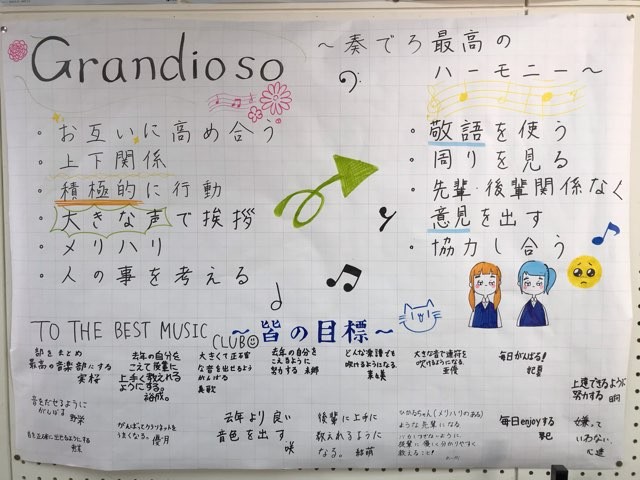 Grandioso
～奏でろ最高の
ハーモニー～
・お互いに高め合う
・上下関係
・積極的に行動
・大きな声で挨拶
・メリハリ
・人の事を考える
・敬語を使う
・周りを見る
・先輩・後輩関係なく
意見を出す
・協力し合う
TO THE BEST MUSIC
CLUB
～皆の目標～
部をまとめ
最高の音楽部にする
去年の自分を
こえて後輩に
上手く教えれる
ようにする。
大きくて正確
な音を出せるよう
がんばる
去年の自分を
こえれるように
努力する
どんな楽譜でも
吹けるようになる
大きな音で連符を
吹けるようになる
毎日がんばる!
上達できるように
努力する
音をだせるように
がんばる
がんばってクラリネットを
うまくなる。
去年より良い
音色を出す
咲
後輩に上手に
教えれるように
なる。
ような先輩になる
後輩に優しく分かりやすく
教えること!
毎日enjoyする
嫌って
いわない